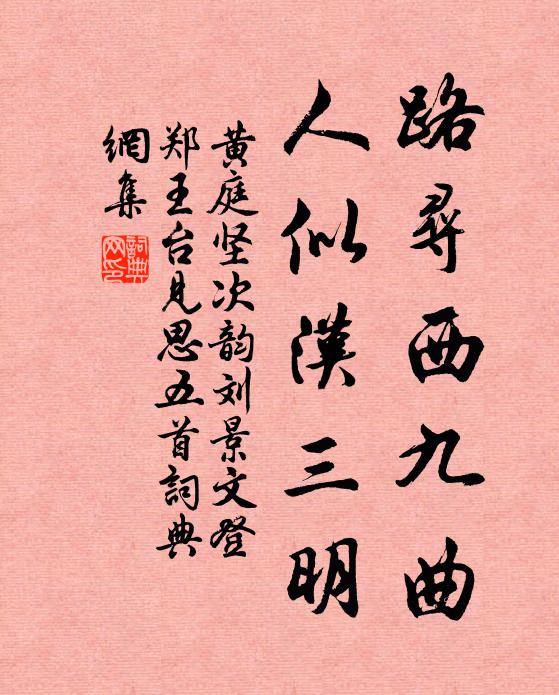 路尋西九曲
人似漢三明
黄庭坚次韵刘景文登
郑王台见思五首詞典
網集
詞典網印